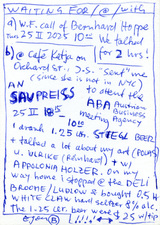 WAITING FOR / @ / with
a) W.F. call of Bernhard Hoppe
Tun 25 II 2025 10⁰⁰ We talked
for 2 hrs!
b) @ Café Katja on
Orchard ST. J.S. "sent" me
(since she is not in NYC)
AN to attend the
SAUPREISS ABA Austrian
25 II 18⁰⁰ Business
meeting Agency
I drank 1.25 Ltr. STIEGL BEER
+ talked a lot about my art (POEMS)
w/ ULRIKE (Reinhard) + w/
APPOLONIA HOLZER. On my
way home i stopped @ the DELI
BROOME/LUDLOW & bought
WHITE CLAW hard seltzer 8% alc
The 1.25 Ltr. beer were $25 w/tip